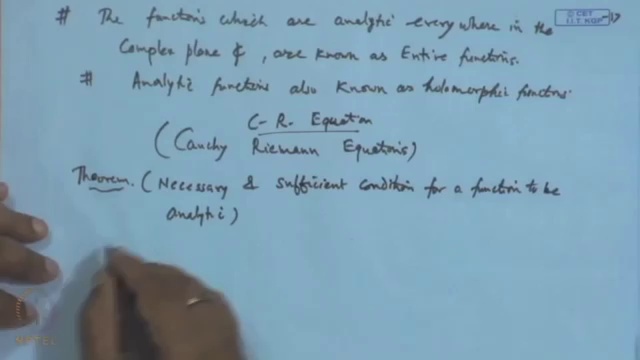 # The functions which are analytic everywhere in the
Complex plane ₵, are known as Entire functions.
# Analytic functions also known as holomorphic functions.
C-R- Equation
(Cauchy Riemann Equations)
Theorem. (Necessary & sufficient condition for a function to be
analytic)
© CET
I.I.T. KGP
NPTEL